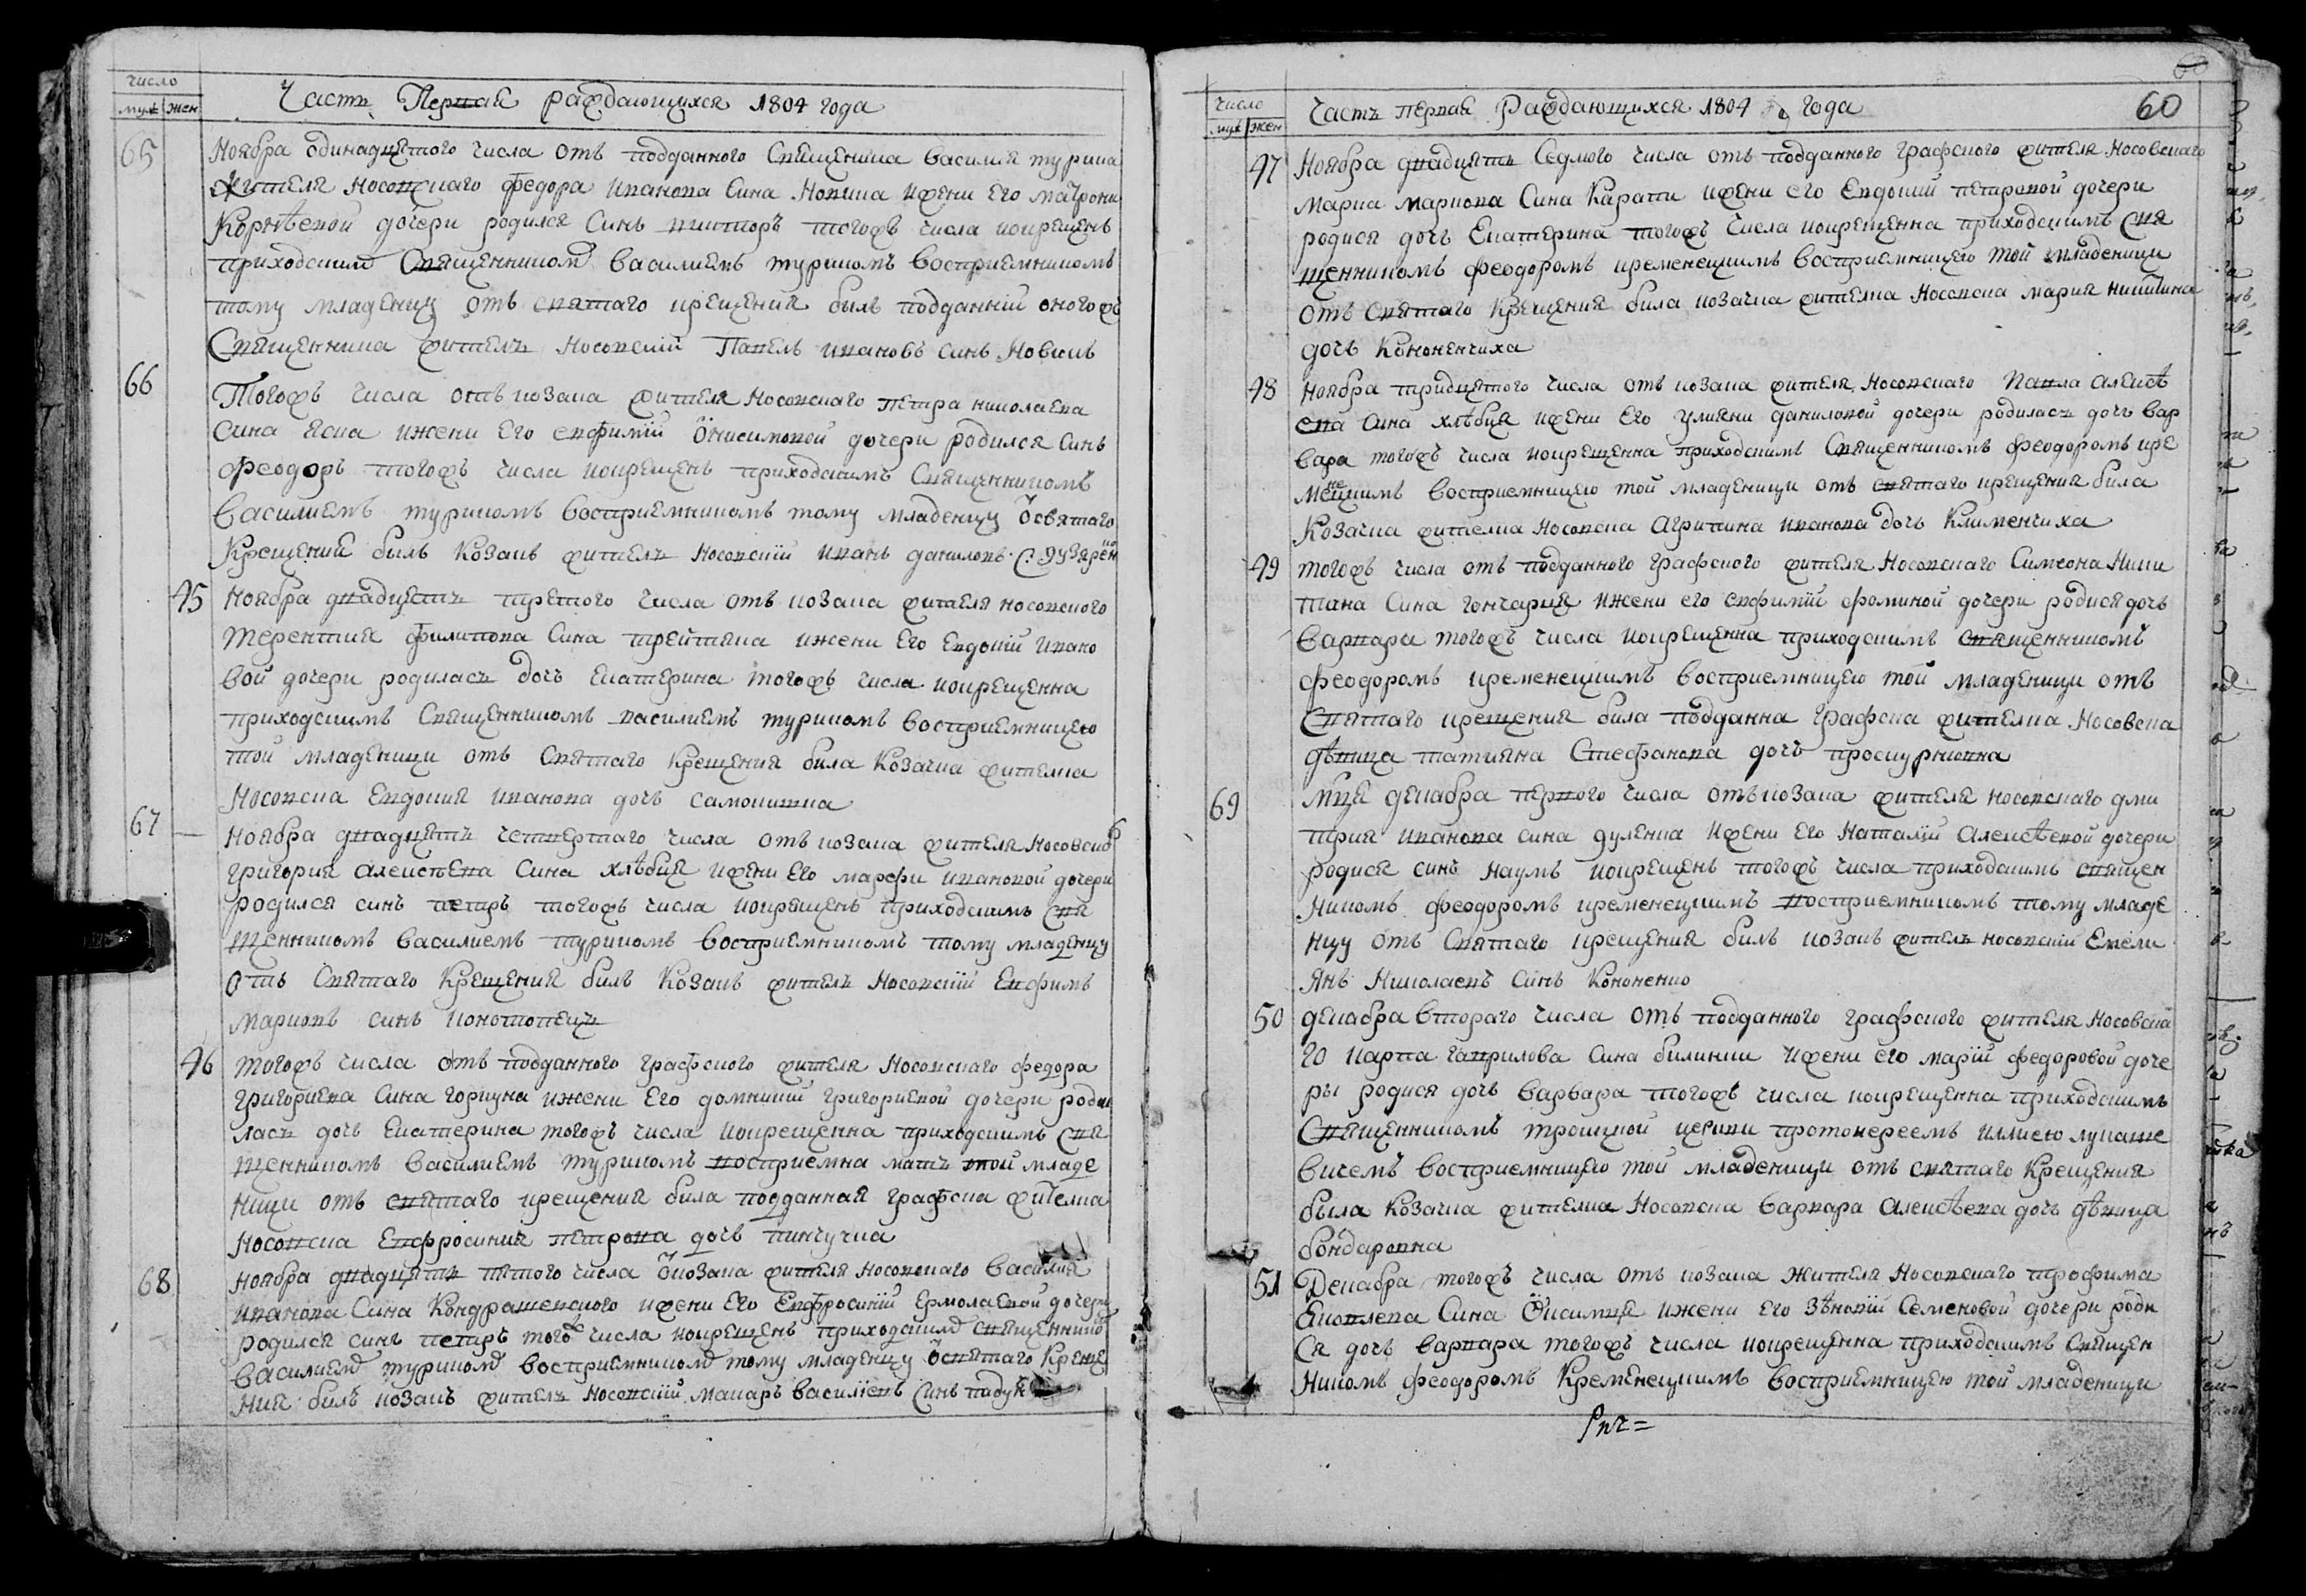 число
муж жен
Часть Первая раждающихся 1804 года
65 Ноября одинадцятого числа отъ подданного Священика василия турика
жителя Носовскаго федора иванова сина Новика ижени Его матрони
Корнѣевой дочери родился Синъ викторъ тогожъ числа иокрещенъ
приходскимъ Священникомъ василиемъ турикомъ восприемникомъ
тому младенцу отъ святаго крещения билъ подданній оногожъ
Священника житель Носовскій Павелъ ивановъ синъ Новикъ
66 Тогожъ числа отъ козака жителя Носовскаго петра николаева
сина Яска ижени Его евфиміи Онисимовой дочери родился Синъ
феодоръ тогожъ числа иокрещенъ приходскимъ Священникомъ
василиемъ турикомъ восприемникомъ тому младенцу Ѿсвятаго
Крещения билъ Козакъ житель Носовскій иванъ даниловъ
45 Ноября двадцеть третого числа отъ козака жителя носовского
терентия филипова сина трейтяка ижени Его Евдокіи ивано
вой дочери родилась дочь Екатерина тогожъ числа иокрещенна
приходскимъ Священникомъ василиемъ турикомъ восприемницею
той младеници отъ Святаго Крещения била Козачка жителка
Носовска Евдокия иванова дочь самокишка
67 Ноября двадцять четвертаго числа отъ козака жителя Носовско
григория алексѣева Сина хлѣбця ижени Его марфи ивановой дочери
родился синъ петръ тогожъ числа иокрещенъ приходскимъ Свя
щенникомъ василиемъ турикомъ восприемникомъ тому младенцу
отъ Святаго Крещения билъ Козакъ житель Носовскій Евфимъ
марковъ синъ конотопецъ
46 тогожъ числа отъ подданного графского жителя Носовскаго федора
григориева Сина горкуна ижени Его домникіи григориевой дочери роди
лась дочь Екатерина тогожъ числа иокрещенна приходскимъ Свя
щенникомъ василиемъ турикомъ восприемна мать той младе
ници отъ святаго крещения била подданная графска жителка
Носовска Евфросиния петрова дочь пинчучка
68 Ноября двадцять пятого числа Ѿкозака жителя Носовского василия
иванова Сина Кондрашевского ижени Его Евфросиніи Ермолаевой дочери
родился синъ петръ тогож числа иокрещенъ приходскимъ священнико
василиемъ турикомъ восприемникомъ тому младенцу Ѿсвятаго Креще
ния билъ козакъ житель Носовскій макаръ василіевъ Синъ
число
муж жен
Часть первая Раждающихся 1804 года 60
47 Ноября двадцять Седмого числа отъ подданного графского жителя Носовскаго
марка маркова Сина Карапи ижени его Евдокіи петровой дочери
родися дочь Екатерина тогожъ числа иокрещенна приходскимъ Свя
щенникомъ феодоромъ кременецкимъ восприемницею той младеници
отъ Святаго Крещения била козачка жителка Носовска мария никитина
дочь Кононенчиха
48 Ноября тридцятого числа отъ козака жителя Носовскаго Павла алексѣ
ева сина хлѣбця ижени Его улияни даниловой дочери родилась дочь вар
вара тогожъ числа иокрещенна приходскимъ Священникомъ феодоромъ кре
менецкимъ восприемницею той младеници отъ святаго крещения била
Козачка жителка Носовска агрипина иванова дочь Клименчиха
49 тогожъ числа отъ подданного графского жителя Носовскаго Симеона Ники
тина Сина гончария ижени его евфиміи фоминой дочери родися дочь
варвара тогожъ числа иокрещенна приходскимъ священникомъ
феодоромъ кременецкимъ восприемницею той младеници отъ
Святаго крещения била подданна графска жителка Носовска
дѣвица татияна Стефанова дочь проскурновна
69 мця декабря первого числа отъ козака жителя носовскаго дми
трия иванова сина дуленка ижени Его Наталіи алексѣевой дочери
родися синъ Наумъ иокрещенъ тогожъ числа приходскимъ священ
никомъ феодоромъ кременецкимъ восприемникомъ тому младе
нцу отъ Святаго крещения билъ козакъ житель носовскій Емели
янъ Николаевъ Синъ Кононенко
50 декабря втораго числа отъ подданного графского жителя Носовска
го карпа гаврилова Сина билинки ижени его маріи федоровой доче
ры родися дочь варвара тогожъ числа иокрещенна приходскимъ
Священникомъ троицкой церкви протоиереемъ иллиею лукаше
вичемъ восприемницею той младеници отъ святаго Крещения
была Козачка жителка Носовска варвара алексѣева дочь дѣвица
бондаровна
51 Декабря тогожъ числа отъ козака жителя Носовскаго трофима
Яковлева Сина Онисимця ижени Его Зѣновіи Семеновой дочери роди
ся дочь варвара тогожъ числа иокрещенна приходскимъ Священ
никомъ феодоромъ Кременецкимъ восприемницею той младеници